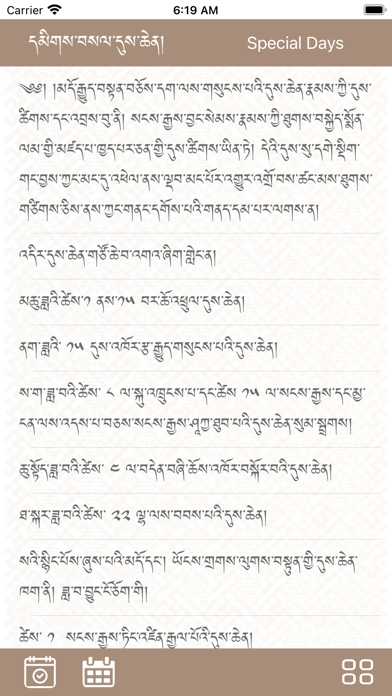 Carrier 6:19 AM
དམིགས་བསལ་དུས་ཆེན། Special Days
༄༅། །མདོ་རྒྱུད་བསྟན་བཅོས་དག་ལས་གསུངས་པའི་དུས་ཆེན་རྣམས་ཀྱི་དུས་
ཚིགས་དང་འབྲས་བུ་ནི། སངས་རྒྱས་བྱང་སེམས་རྣམས་ཀྱི་ཐུགས་བསྐྱེད་སྨོན་
ལམ་གྱི་མཛད་པ་ཁྱད་པར་ཅན་གྱི་དུས་ཚིགས་ཡིན་ཏེ། དེའི་དུས་སུ་དགེ་སྡིག་
གང་བྱས་ཀྱང་མང་དུ་འཕེལ་ནས་ལྡབ་མང་པོར་འགྱུར་འགྲོ་བས་ཚང་མས་ཐུགས་
གཅིགས་ཅིས་ནས་ཀྱང་གནང་དགོས་པའི་གནད་དམ་པར་ལགས་ན།
འདིར་དུས་ཆེན་གཙོ་ཆེ་བ་འགའ་ཞིག་གླེང་ན།
མཆུ་ཟླའི་ཚེས་༡ ནས་༡༥ བར་ཆོ་འཕྲུལ་དུས་ཆེན།
ནག་ཟླའི་ ༡༥ དུས་འཁོར་རྩ་རྒྱུད་གསུངས་པའི་དུས་ཆེན།
ས་ག་ཟླ་བའི་ཚེས་ ༨ ལ་སྐུ་འཁྲུངས་པ་དང་ཚེས ༡༥ ལ་སངས་རྒྱས་དང་མྱ་
ངན་ལས་འདས་པ་བཅས་སངས་རྒྱས་ཤཱཀྱ་ཐུབ་པའི་དུས་ཆེན་སུམ་སྦྲགས།
ཆུ་སྟོད་ཟླ་བའི་ཚེས་ ༤ ལ་བདེན་བཞི་ཆོས་འཁོར་བསྐོར་བའི་དུས་ཆེན།
ཐ་སྐར་ཟླ་བའི་ཚེས་ ༢༢ ལྷ་ལས་བབས་པའི་དུས་ཆེན།
སའི་སྙིང་པོས་ཞུས་པའི་མདོ་དང་། ཡོངས་གྲགས་ལུགས་བསྟུན་གྱི་དུས་ཆེན་
ཁག་ནི། ཟླ་བ་བྱུང་ངོ་ཅོག་གི།
ཚེས་ ༡ སངས་རྒྱས་ཏིང་འཛིན་རྒྱལ་པོའི་དུས་ཆེན།